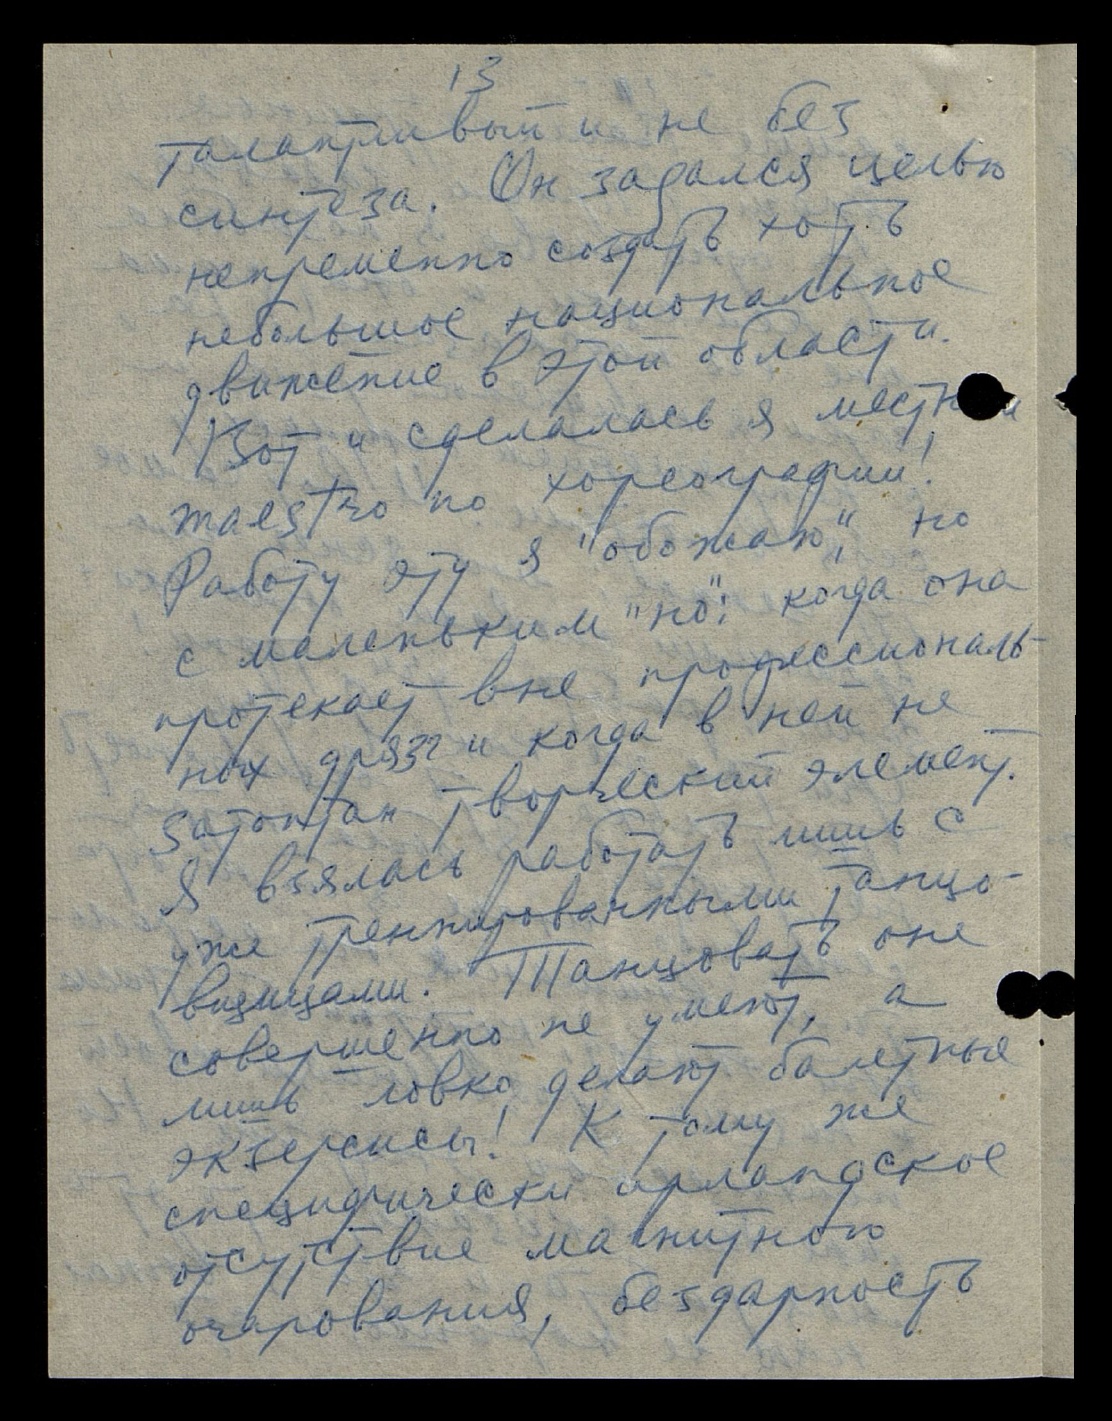 13
талантливый и не без
синтеза. Он задался целью
непременно создать хоть
небольшое национальное
движение в этой области.
Вот и сделалась я
maestro по хореографии!
Работу эту я "обожаю", но
с маленьким "но": когда она
протекает вне профессиональ-
ных дрязг и когда в ней не
затоптан творческий элемент.
Я взялась работать лишь с
уже тренированными танцо-
вщицами. Танцовать оне
совершенно не умеют, а
лишь ловко делают балетные
экзерсисы! К тому же
специфически ирландское
отсутствие магнитного
очарования, бездарность